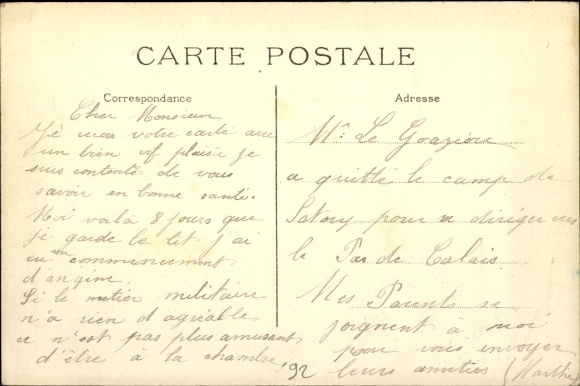 CARTE POSTALE
Correspondance
Cher Monsieur
J'ai reçu votre carte avec
un bien vif plaisir je
suis contente de vous
savoir en bonne santé.
Moi voilà 8 jours que
je garde le lit j'ai
eu un commencement
d'angine.
Si le metier militaire
n'a rien d'agréable
ce n'est pas plus amusant
d'être à la chambre
92
Adresse
Mr Le Goazion
a quitté le camp de
Satory pour se diriger vers
le Pas de Calais
Mes Parents se
joignent à moi
pour vous envoyer
leurs amitiés (Marthe)